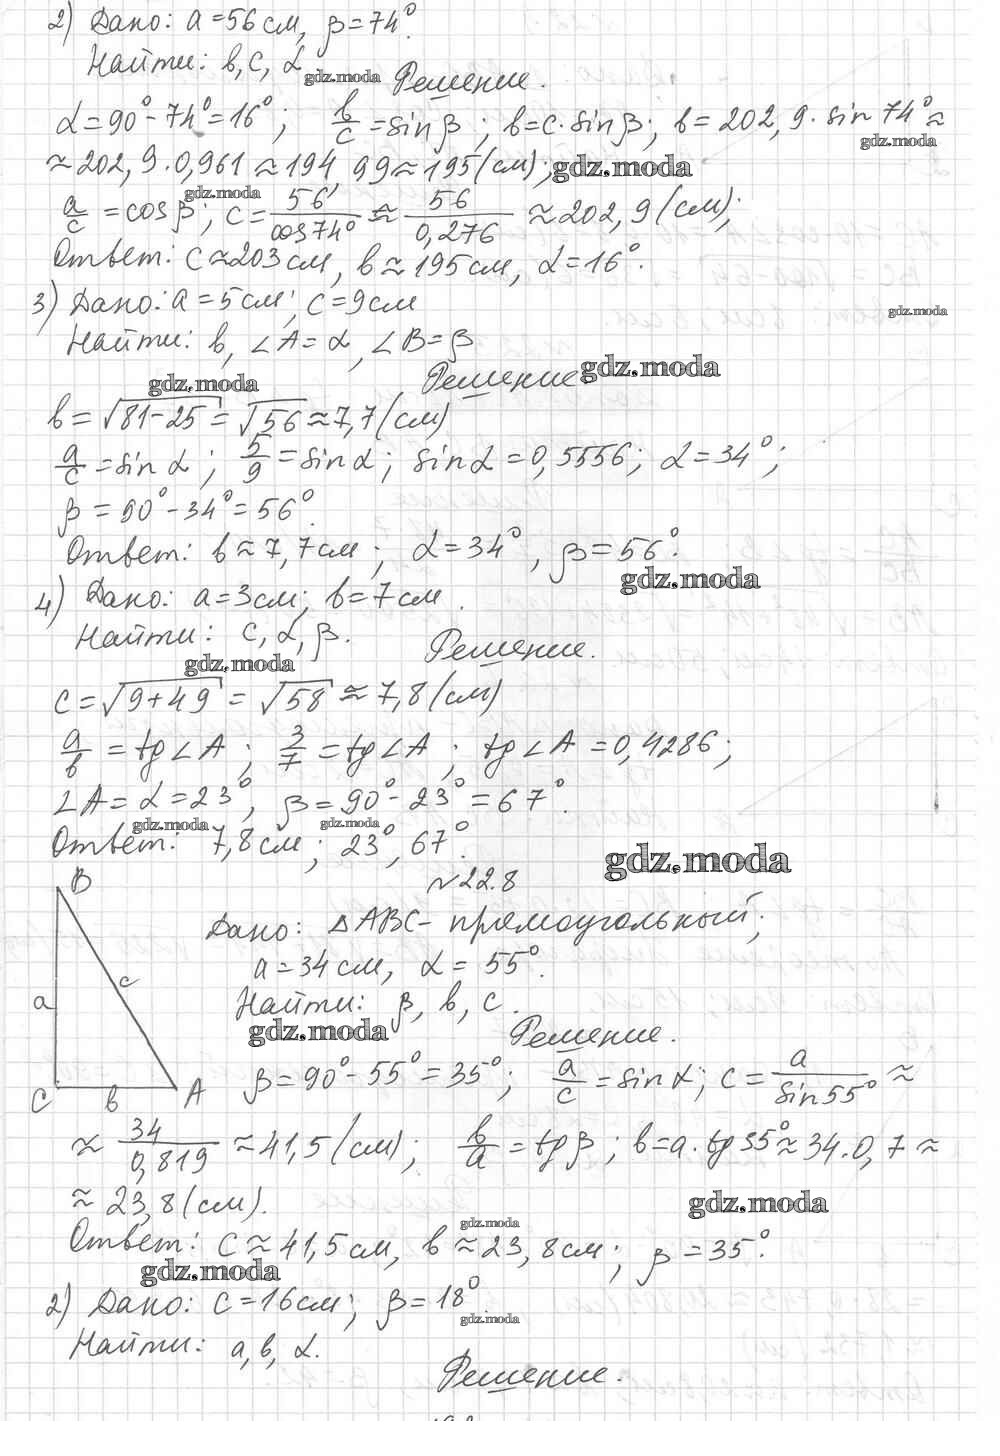 2) Дано: a=56 см, β=74°.
Найти: b, c, α
gdz.moda
Решение.
α=90°-74°=16°; b/c = sin β; b=c·sin β; b=202,9·sin 74°≈
gdz.moda
≈202,9·0,961≈194,99≈195(см);
gdz.moda
gdz.moda
a/c = cos β; c = 56/cos74° ≈ 56/0,276 ≈202,9(см);
Ответ: c≈203 см, b≈195 см, α=16°.
3) Дано: a=5 см; c=9 см
gdz.moda
Найти: b, ∠A=α, ∠B=β
Решение
gdz.moda
gdz.moda
b=√81-25=√56≈7,7(см)
a/c = sin α; 5/9 = sin α; sin α=0,5556; α=34°;
β=90°-34°=56°.
Ответ: b≈7,7 см; α=34°, β=56°.
gdz.moda
4) Дано: a=3 см; b=7 см.
Найти: c, α, β.
Решение.
gdz.moda
c=√9+49=√58≈7,8(см)
a/b = tg∠A; 3/7 = tg∠A; tg∠A=0,4286;
∠A=α=23°, β=90°-23°=67°.
gdz.moda
gdz.moda
Ответ: 7,8 см; 23°, 67°.
gdz.moda
№22.8
B
Дано: △ABC- прямоугольный;
a=34 см, α=55°.
a
c
Найти: β, b, c.
gdz.moda
Решение.
C
b
A
β=90°-55°=35°; a/c = sin α; c = a/sin55° ≈
≈ 34/0,819 ≈41,5(см); b/a = tg β; b=a·tg35°≈34·0,7≈
≈23,8(см).
gdz.moda
gdz.moda
Ответ: c≈41,5 см, b≈23,8 см; β=35°.
gdz.moda
2) Дано: c=16 см; β=18°
gdz.moda
Найти: a, b, α.
Решение.